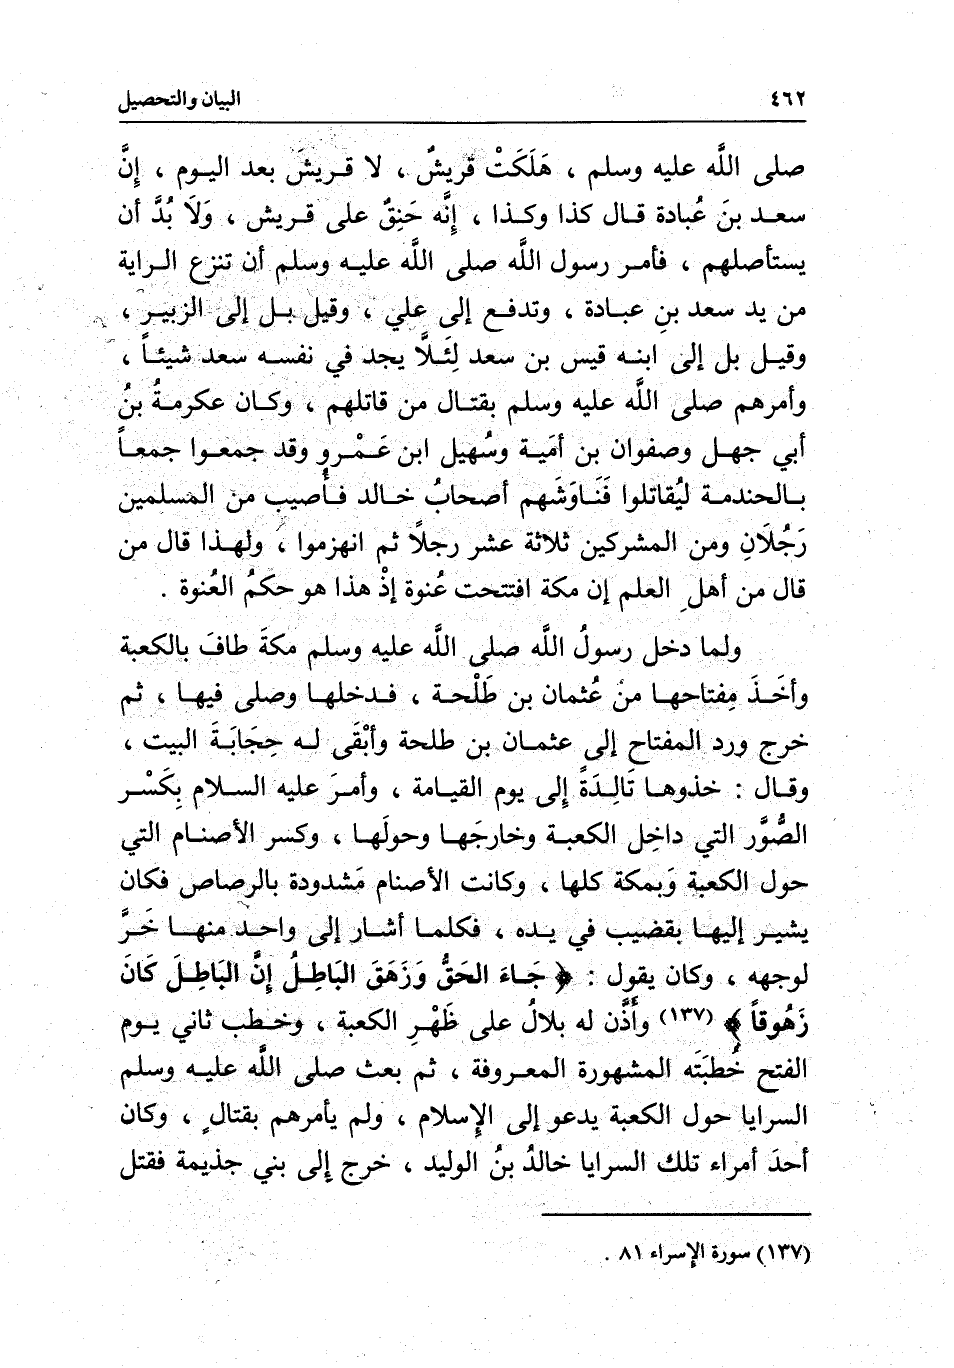 ٤٦٢
البيان والتحصيل
صلى اللَّه عليه وسلم ، هَلَكَتْ قريشٌ ، لا قريشَ بعد اليوم ، إنَّ
سعد بنَ عُبادة قال كذا وكذا ، إنَّه حَنِقٌ على قريش ، وَلَا بُدَّ أن
يستأصلهم ، فأمر رسول اللَّه صلى اللَّه عليه وسلم أن تنزع الراية
من يد سعد بنِ عبادة ، وتدفع إلى علي ، وقيل بل إلى الزبير ،
وقيل بل إلى ابنه قيس بن سعد لِئَلَّا يجد في نفسه سعد شيئاً ،
وأمرهم صلى اللَّه عليه وسلم بقتال من قاتلهم ، وكان عكرمةُ بنُ
أبي جهل وصفوان بن أمَية وسُهيل ابن عَمْرو وقد جمعوا جمعاً
بالحندمة ليُقاتلوا فَنَاوَشَهم أصحابُ خالد فأصيب من المسلمين
رَجُلَانِ ومن المشركين ثلاثة عشر رجلاً ثم انهزموا ، ولهذا قال من
قال من أهل العلم إن مكة افتتحت عُنوة إذْ هذا هو حكمُ العُنوة .
ولما دخل رسولُ اللَّه صلى اللَّه عليه وسلم مكةَ طافَ بالكعبة
وأخَذَ مِفتاحها منْ عُثمان بن طَلْحة ، فدخلها وصلى فيها ، ثم
خرج ورد المفتاح إلى عثمان بن طلحة وأبْقَى له حِجَابَةَ البيت ،
وقال : خذوها تَالِدَةً إلى يوم القيامة ، وأمرَ عليه السلام بِكَسْر
الصُّوَّر التي داخِل الكعبة وخارجَها وحولَها ، وكسر الأصنام التي
حول الكعبة وَبمكة كلها ، وكانت الأصنام مَشدودة بالرصاص فكان
يشير إليها بقضيب في يده ، فكلما أشار إلى واحد منها خَرَّ
لوجهه ، وكان يقول : ﴿ جَاءَ الحَقُّ وَزَهَقَ البَاطِلُ إنَّ البَاطِلَ كَانَ
زَهُوقاً ﴾ (١٣٧) وأَذَّن له بلالُ على ظَهْرِ الكعبة ، وخطب ثاني يوم
الفتح خُطبَتَه المشهورة المعروفة ، ثم بعث صلى اللَّه عليه وسلم
السرايا حول الكعبة يدعو إلى الإسلام ، ولم يأمرهم بقتال ، وكان
أحدَ أمراء تلك السرايا خالدُ بنُ الوليد ، خرج إلى بني جذيمة فقتل
(١٣٧) سورة الإسراء ٨١ .